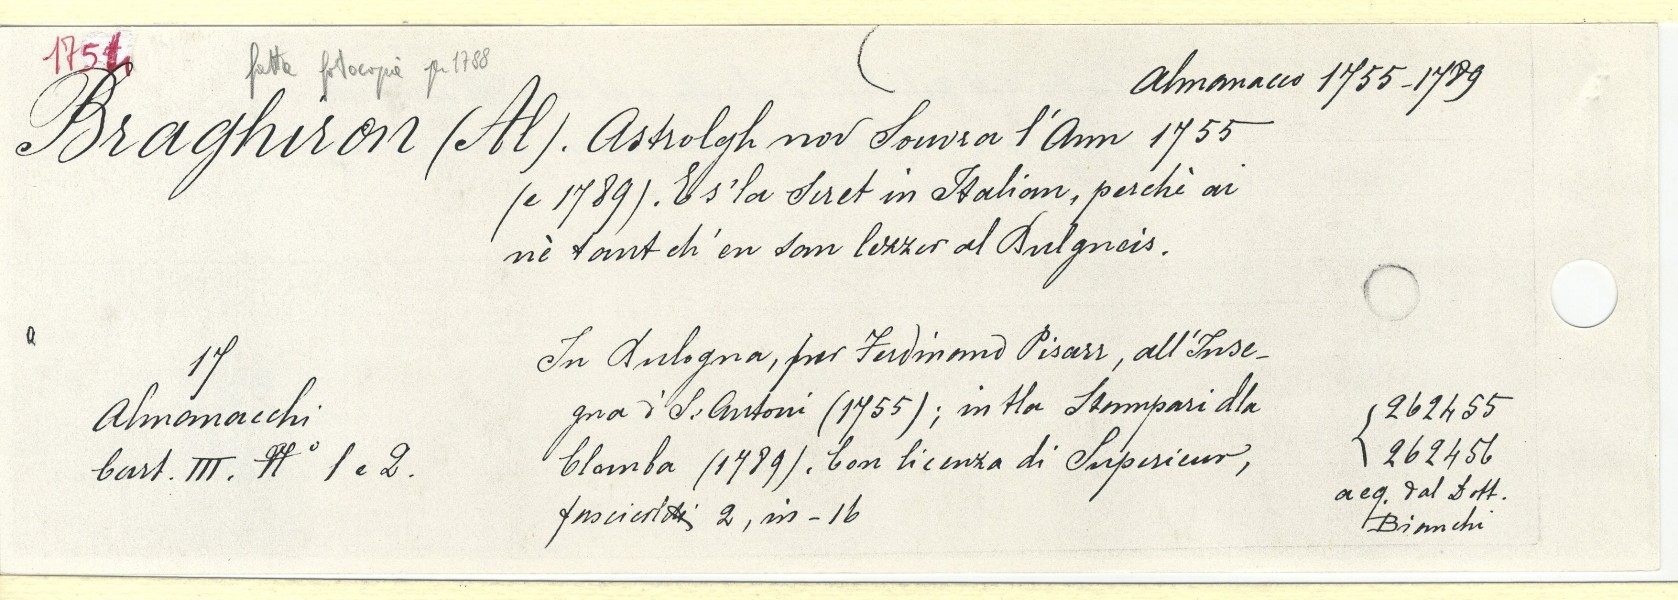 1751
fatta fotocopia per 1788
Almanacco 1755-1789
Braghiron (Al). Astrolgh nov Souvra l'Ann 1755
(e 1789). E s'la Scret in Italian, perchè ai
nè tant ch'en san lezzer al Bulgneis.
a
17
Almanacchi
Cart. III. N° 1 e 2.
In Bulogna, per Ferdinand Pisarr, all'Inse-
gna d S. Antoni (1755); in tla Stampari dla
Clomba (1789). Con licenza di Superieur,
fascicoli 2, in-16
262455
262456
acq. dal Dott.
Bianchi